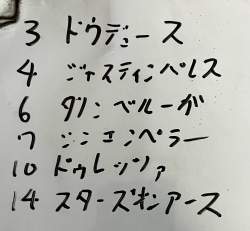 3 ドウデュース
4 ジャスティンパレス
6 ダノンベルーガ
7 シンエンペラー
10 ドゥレッツァ
14 スターズオンアース